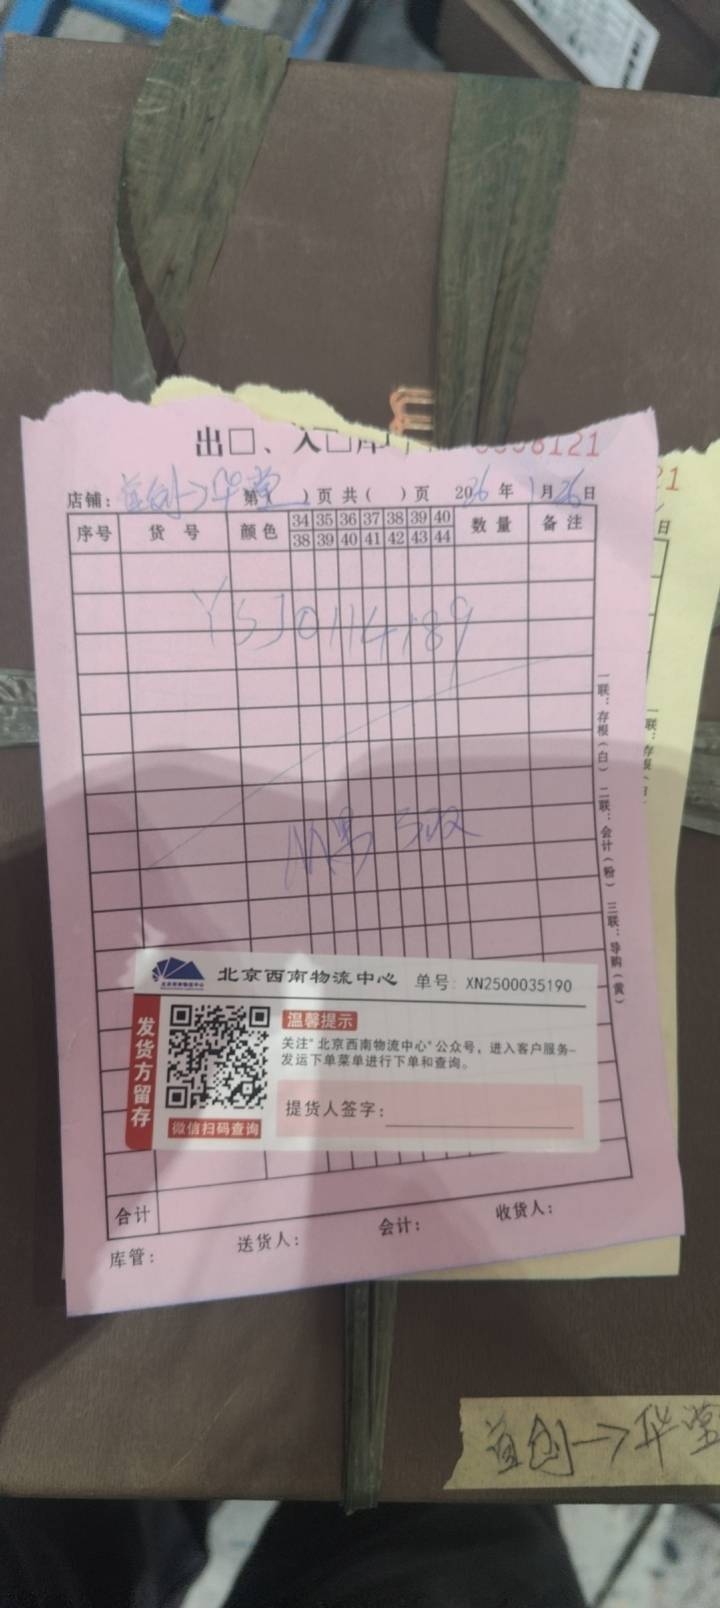 出□、入□库
8121
店铺：首创→华堂 第( )页 共( )页 2026年1月26日
序号 货号 颜色 34 35 36 37 38 39 40 数量 备注
38 39 40 41 42 43 44
YSJ0114189
5双
一联：存根（白） 二联：会计（粉） 三联：导购（黄）
北京西南物流中心 单号: XN2500035190
发货方留存
温馨提示
关注"北京西南物流中心"公众号，进入客户服务–
发运下单菜单进行下单和查询。
提货人签字：
微信扫码查询
合计
库管： 送货人： 会计： 收货人：
21
日
一联：存根
首创→华堂